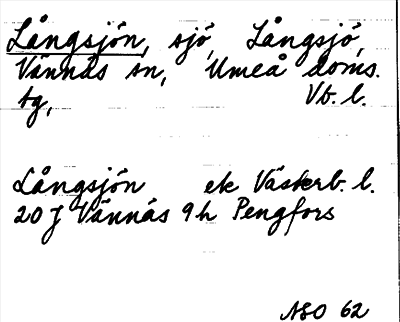 Långsjön, sjö, Långsjö,
Vännäs sn, Umeå doms.
tg, Vb. l.
Långsjön ek Västerb. l.
20 J Vännäs 9 h Pengfors
NSO 62